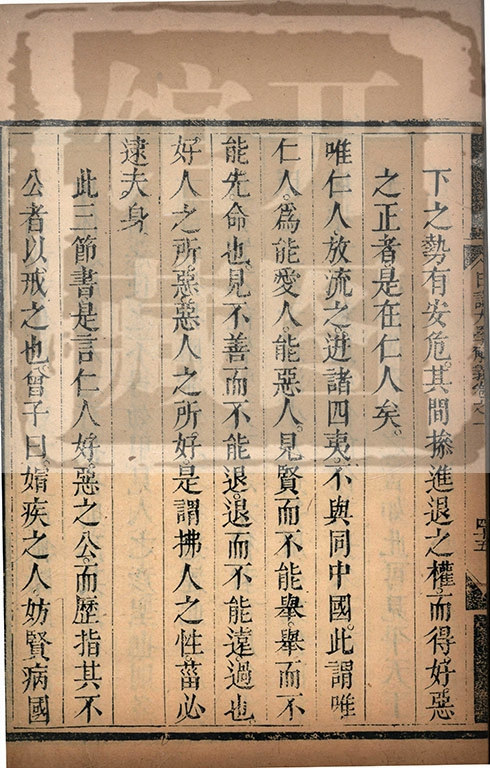 下之勢有安危。其間操進退之權。而得好惡
之正者。是在仁人矣。
唯仁人放流之。迸諸四夷。不與同中國。此謂唯
仁人。爲能愛人。能惡人。見賢而不能舉。舉而不
能先。命也。見不善而不能退。退而不能遠。過也
好人之所惡。惡人之所好。是謂拂人之性。菑必
逮夫身。
此三節書。是言仁人好惡之公。而歷指其不
公者以戒之也。曾子曰。媢疾之人。妨賢病國
四十五